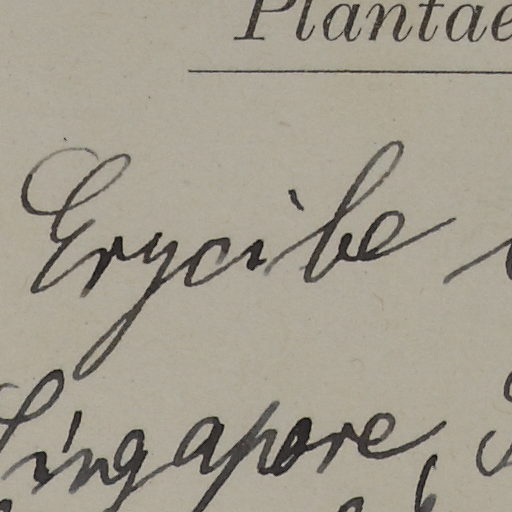 Plantae
Erycibe
Singapore